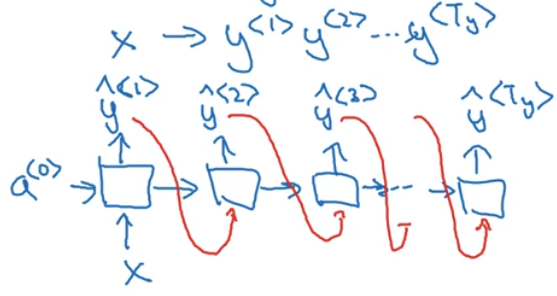 x → y<1> y<2> ... y<Ty>
ŷ<1> ŷ<2> ŷ<3> ŷ<Ty>
a<0>
x